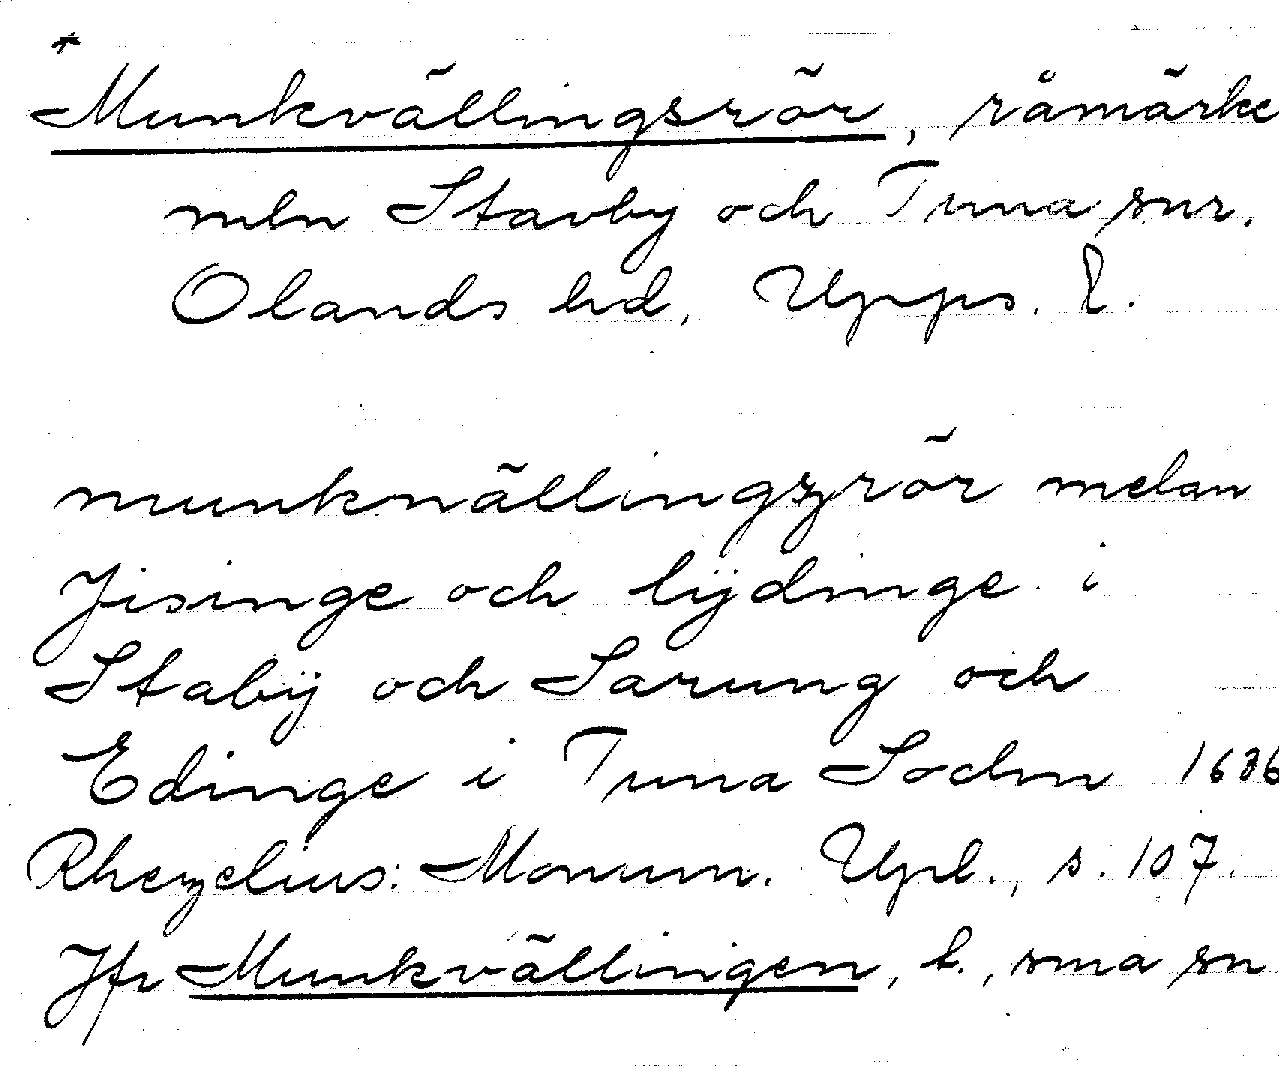 *
Munkvällingsrör, råmärke
mln Stavby och Tuna snr,
Olands hd, Upps. l.
munknällingzrör melan
Jisinge och lÿdinge i
Stabÿ och Sarung och
Edinge i Tuna Sochn 1686
Rhezelius: Monum. Upl., s. 107.
Jfr Munkvällingen, b., sma sn